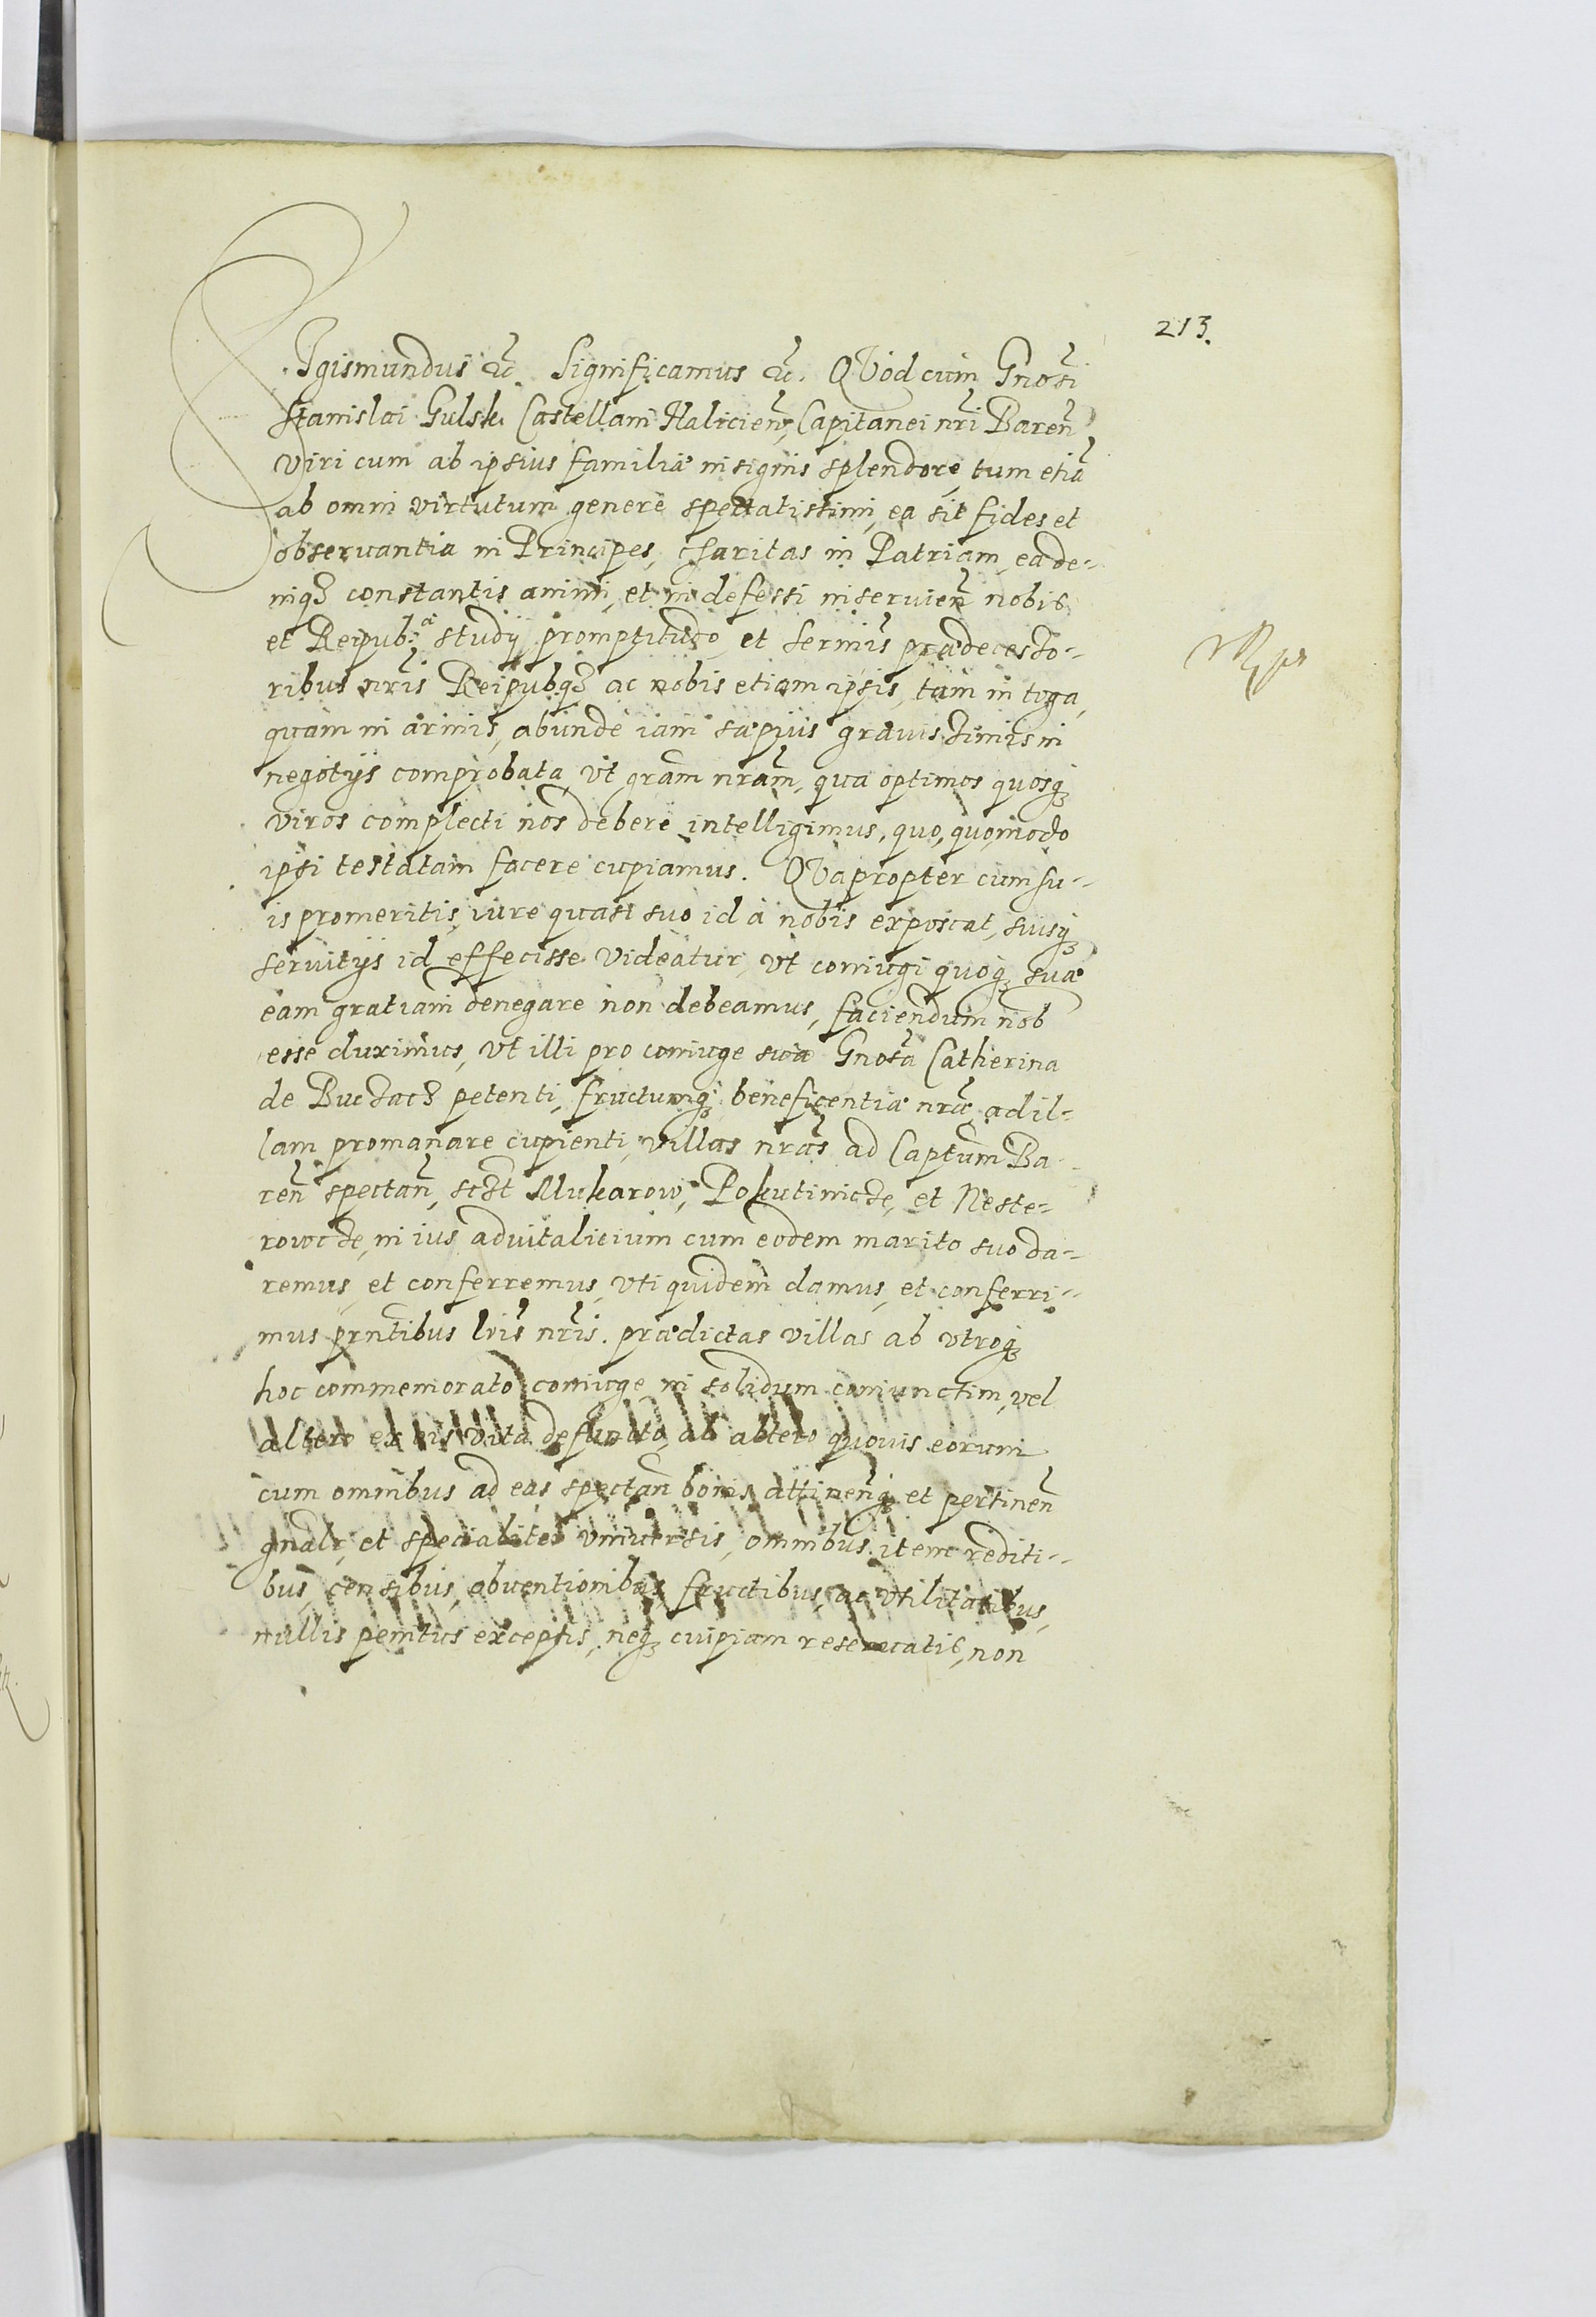 213.
Sigismundus etc. Significamus etc. QVod cum Gnosi
Stanislai Gulsk. Castellani Halicien, Capitanei nri Baren
viri cum ab ipsius familiæ insignis splendore, tum etiã
ab omni virtutum genere spectatissimi, ea sit fides et
obseruantia in Principes, charitas in Patriam, ea de-
niqз constantis animi, et indefessi inseruien nobis
et Reipub: studij promptitudo, et Sermis prædecesso-
ribus nris Reipubqз ac nobis etiam ipsis, tam in toga,
quam in armis, abunde iam sæpius grauissimis in
negotijs comprobata, vt gram nram, qua optimos quosqз
viros complecti nos debere intelligimus, quo, quomodo
ipsi testatam facere cupiamus. QVapropter cum su-
is promeritis iure quasi suo id à nobis exposcat, suisqз
seruitijs id effecisse videatur, vt coniugi quoqз suæ
eam gratiam denegare non debeamus, faciendum nob
esse duximus, vt illi pro coniuge sua Gnosa Catherina
de Buczacz petenti, fructumqз beneficentiæ nræ ad il-
lam promanare cupienti, villas nras ad Captum Ba-
ren spectan, sczt Mukarow, Pokutincze, et Neste-
rowcze, in ius aduitalicium cum eodem marito suo da-
remus, et conferremus, vti quidem damus, et conferri-
mus prntibus lris nris. prædictas villas ab vtroqз
hoc commemorato coniuge in solidum coniunctim, vel
altero ex eis vita defuncto, ab altero quouis eorum
cum omnibus ad eas spectan bonis attinenqз et pertinen
gnalr, et specialiter vniuersis, omnibus item rediti-
bus, censibus, obuentionibus, fructibus, ac vtilitatibus,
nullis penitus exceptis, neqз cuipiam reseruatis, non